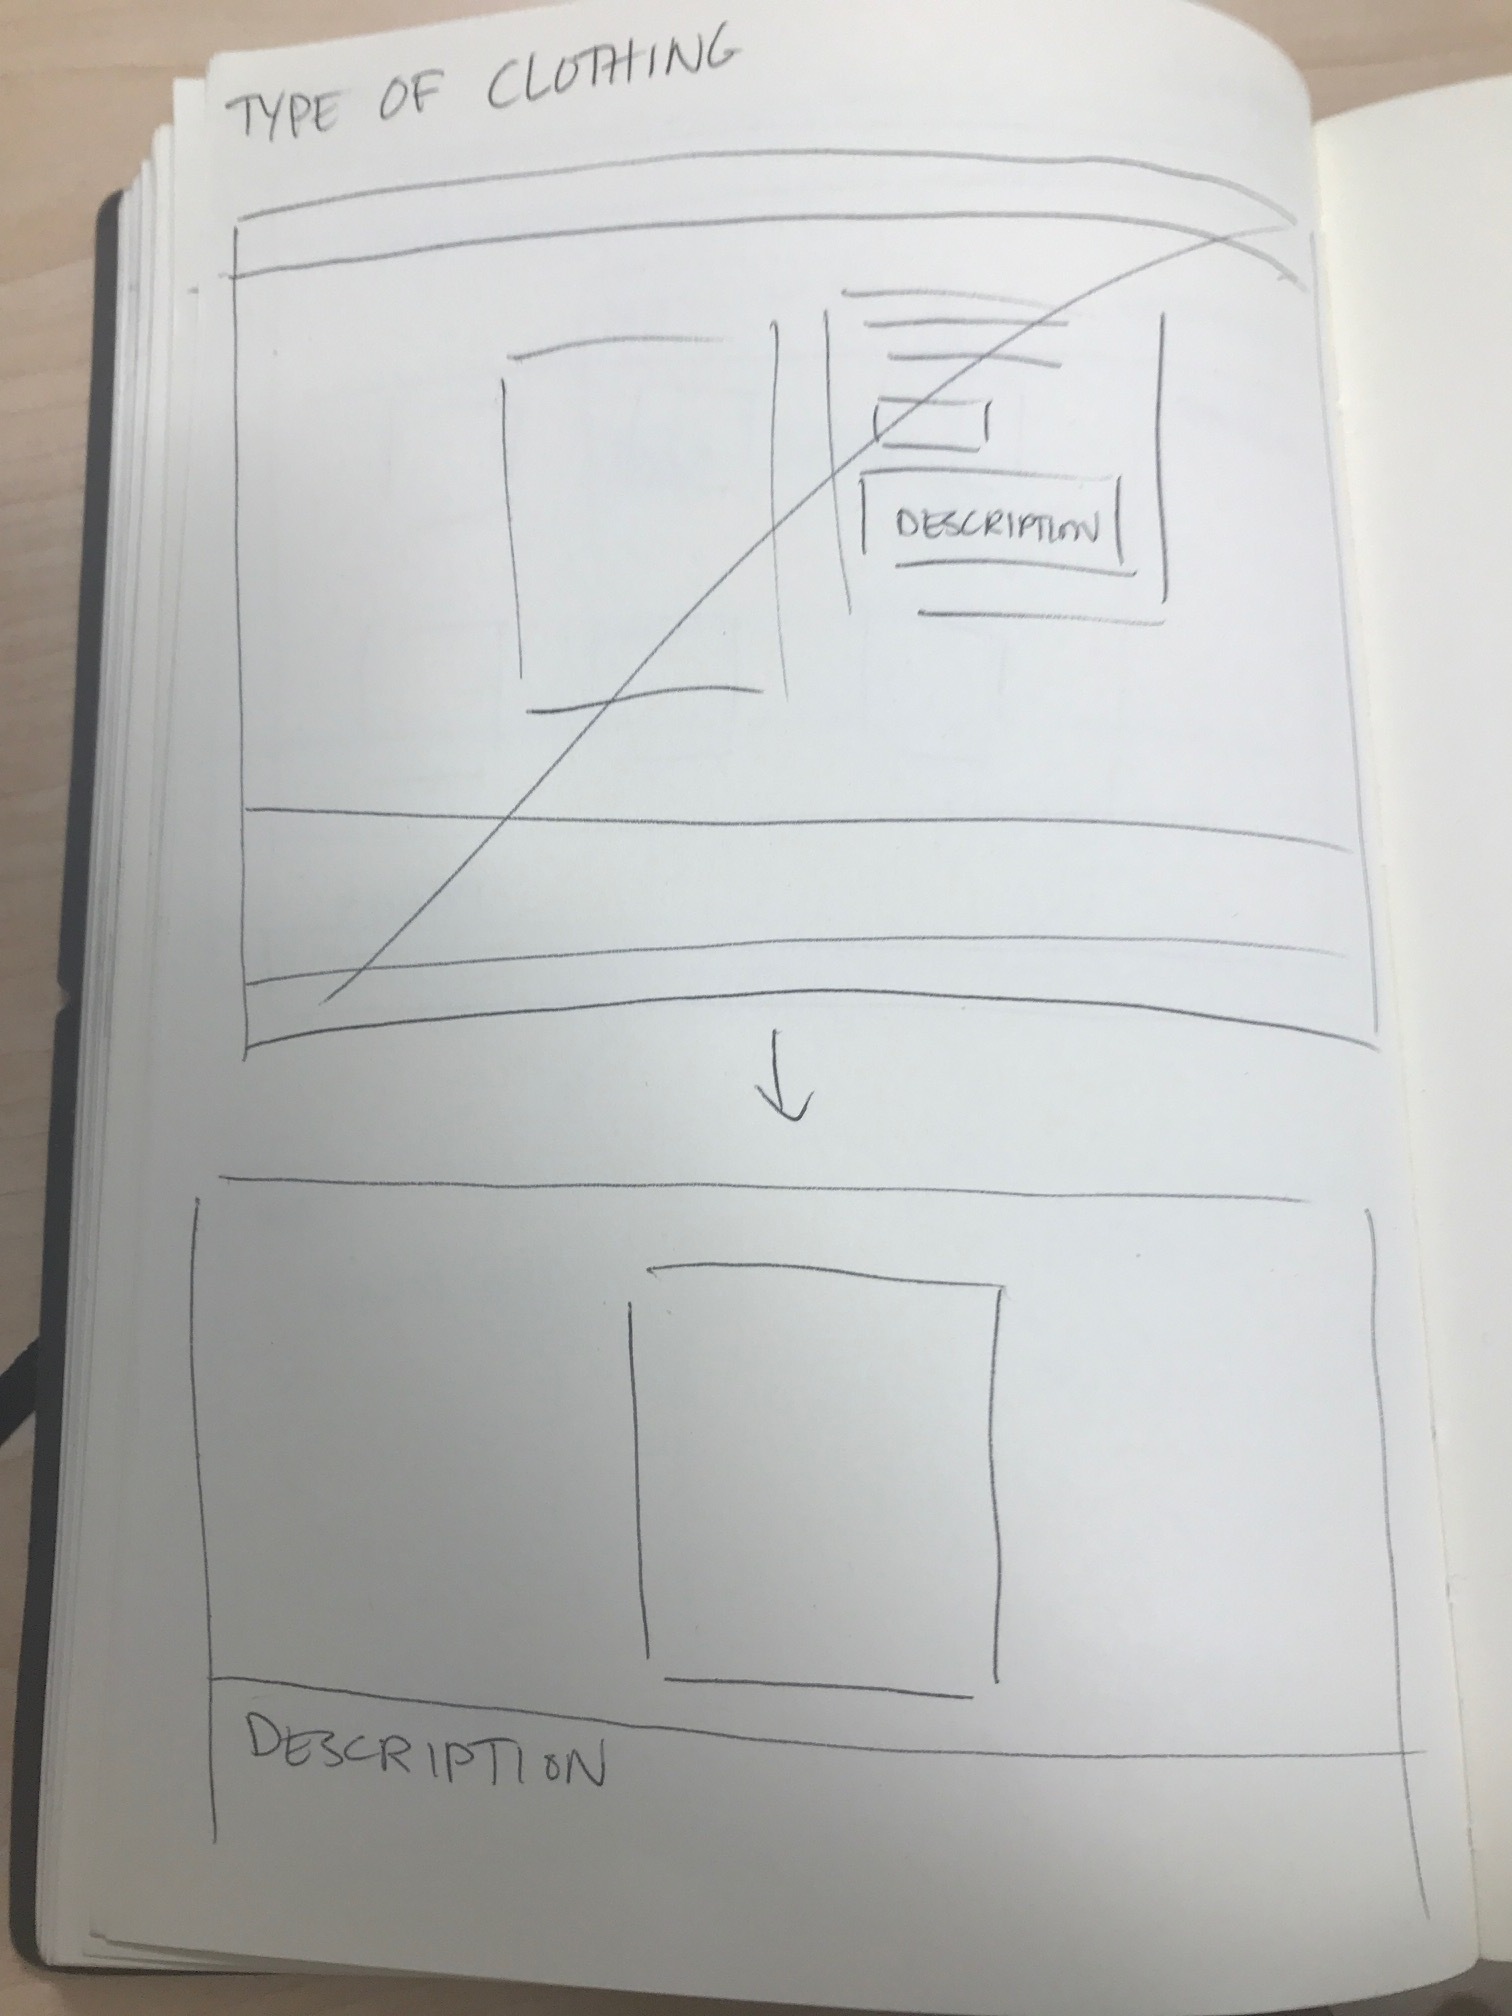 TYPE OF CLOTHING
DESCRIPTION
DESCRIPTION